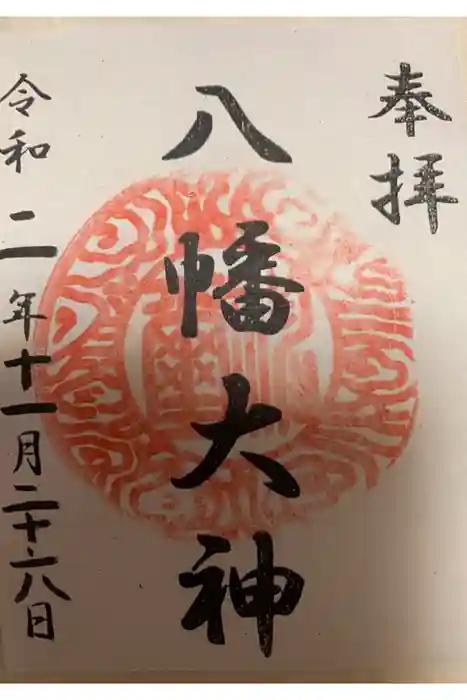 奉拝
八幡大神
令和二年十一月二十六日